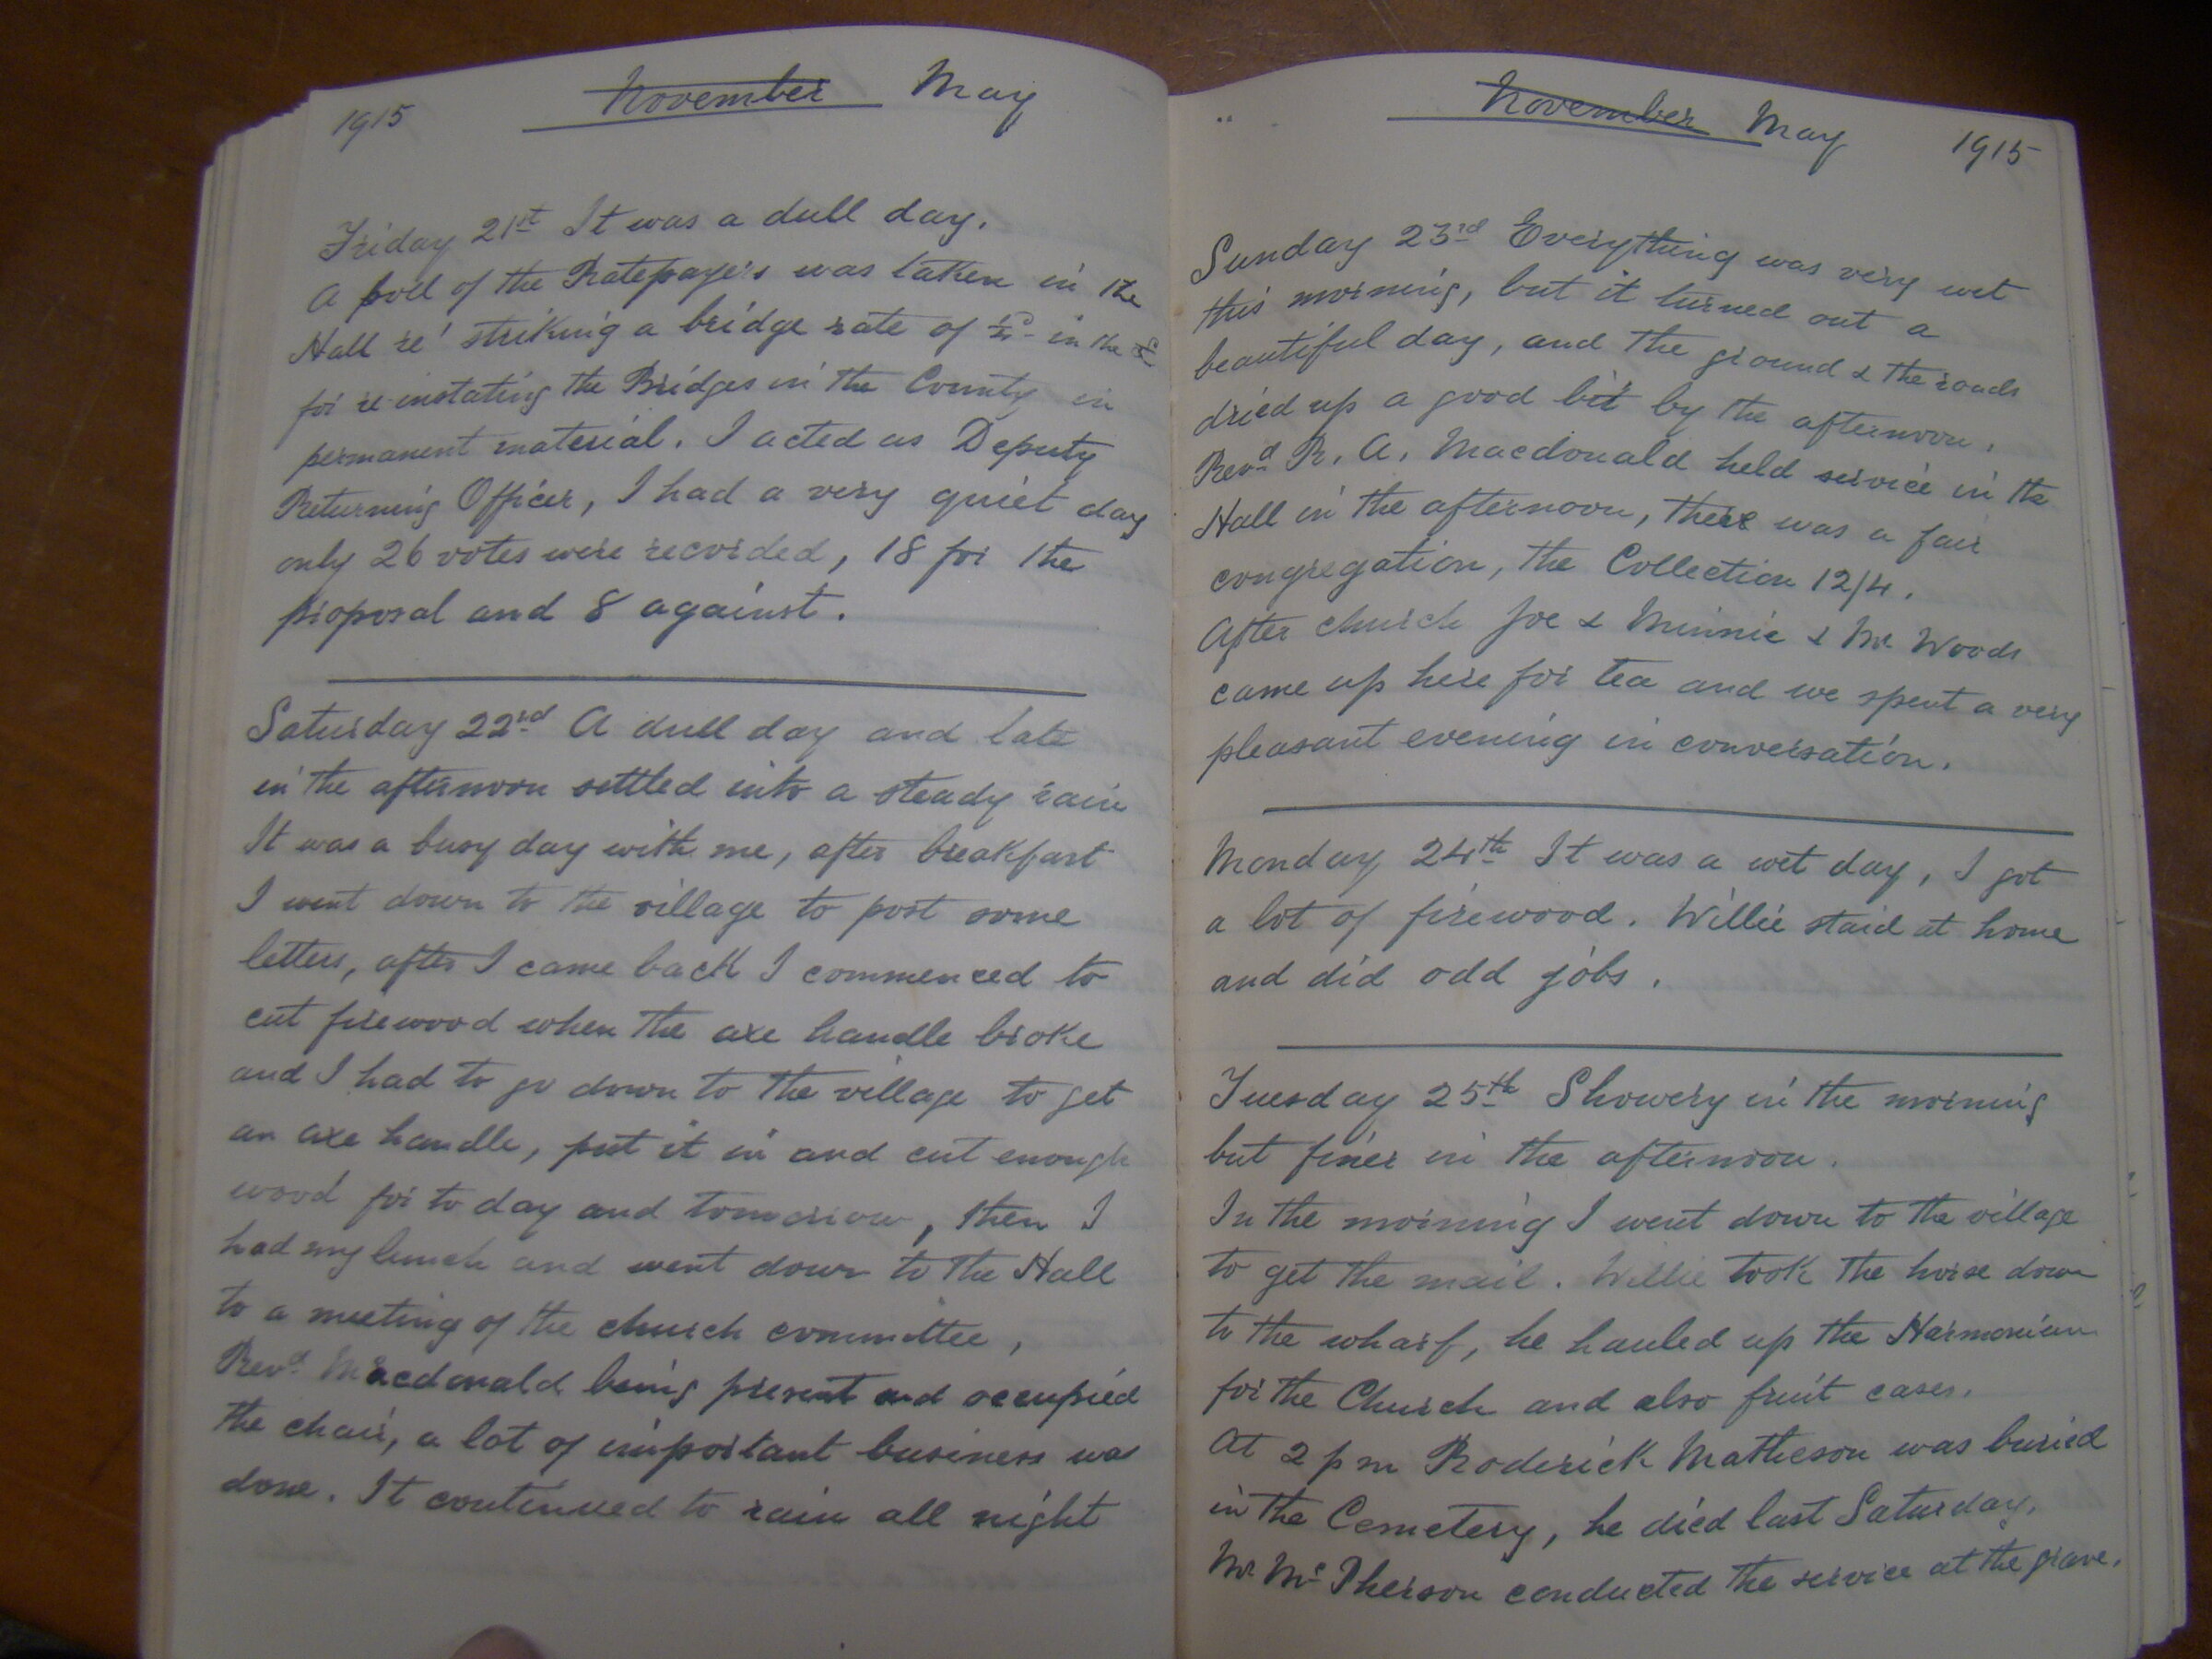 1915 November May
Friday 21st It was a dull day.
A poll of the Ratepayers was taken in the
Hall re' striking a bridge rate of ½D in the £
for re-instating the Bridges in the County in
permanent material. I acted as Deputy
Returning Officer, I had a very quiet day
only 26 votes were recorded, 18 for the
proposal and 8 against.
Saturday 22rd A dull day and late
in the afternoon settled into a steady rain
It was a busy day with me, after breakfast
I went down to the village to post some
letters, after I came back I commenced to
cut firewood when the axe handle broke
and I had to go down to the village to get
an axe handle, put it in and cut enough
wood for to day and tomorrow, then I
had my lunch and went down to the Hall
to a meeting of the church committee,
Revd. Macdonald being present and occupied
the chair, a lot of important business was
done. It continued to rain all night
November May 1915
Sunday 23rd Everything was very wet
this morning, but it turned out a
beautiful day, and the ground & the roads
dried up a good bit by the afternoon.
Revd R. A. Macdonald held service in the
Hall in the afternoon, there was a fair
congregation, the Collection 12/4.
After church Joe & Minnie & Mr Woods
came up here for tea and we spent a very
pleasant evening in conversation.
Monday 24th It was a wet day, I got
a lot of firewood. Willie staid at home
and did odd jobs.
Tuesday 25th Showery in the morning
but finer in the afternoon.
In the morning I went down to the village
to get the mail. Willie took the horse down
to the wharf, he hauled up the Harmonium
for the Church and also fruit cases.
At 2 pm Roderick Matheson was buried
in the Cemetery, he died last Saturday.
Mr McPherson conducted the service at the grave.